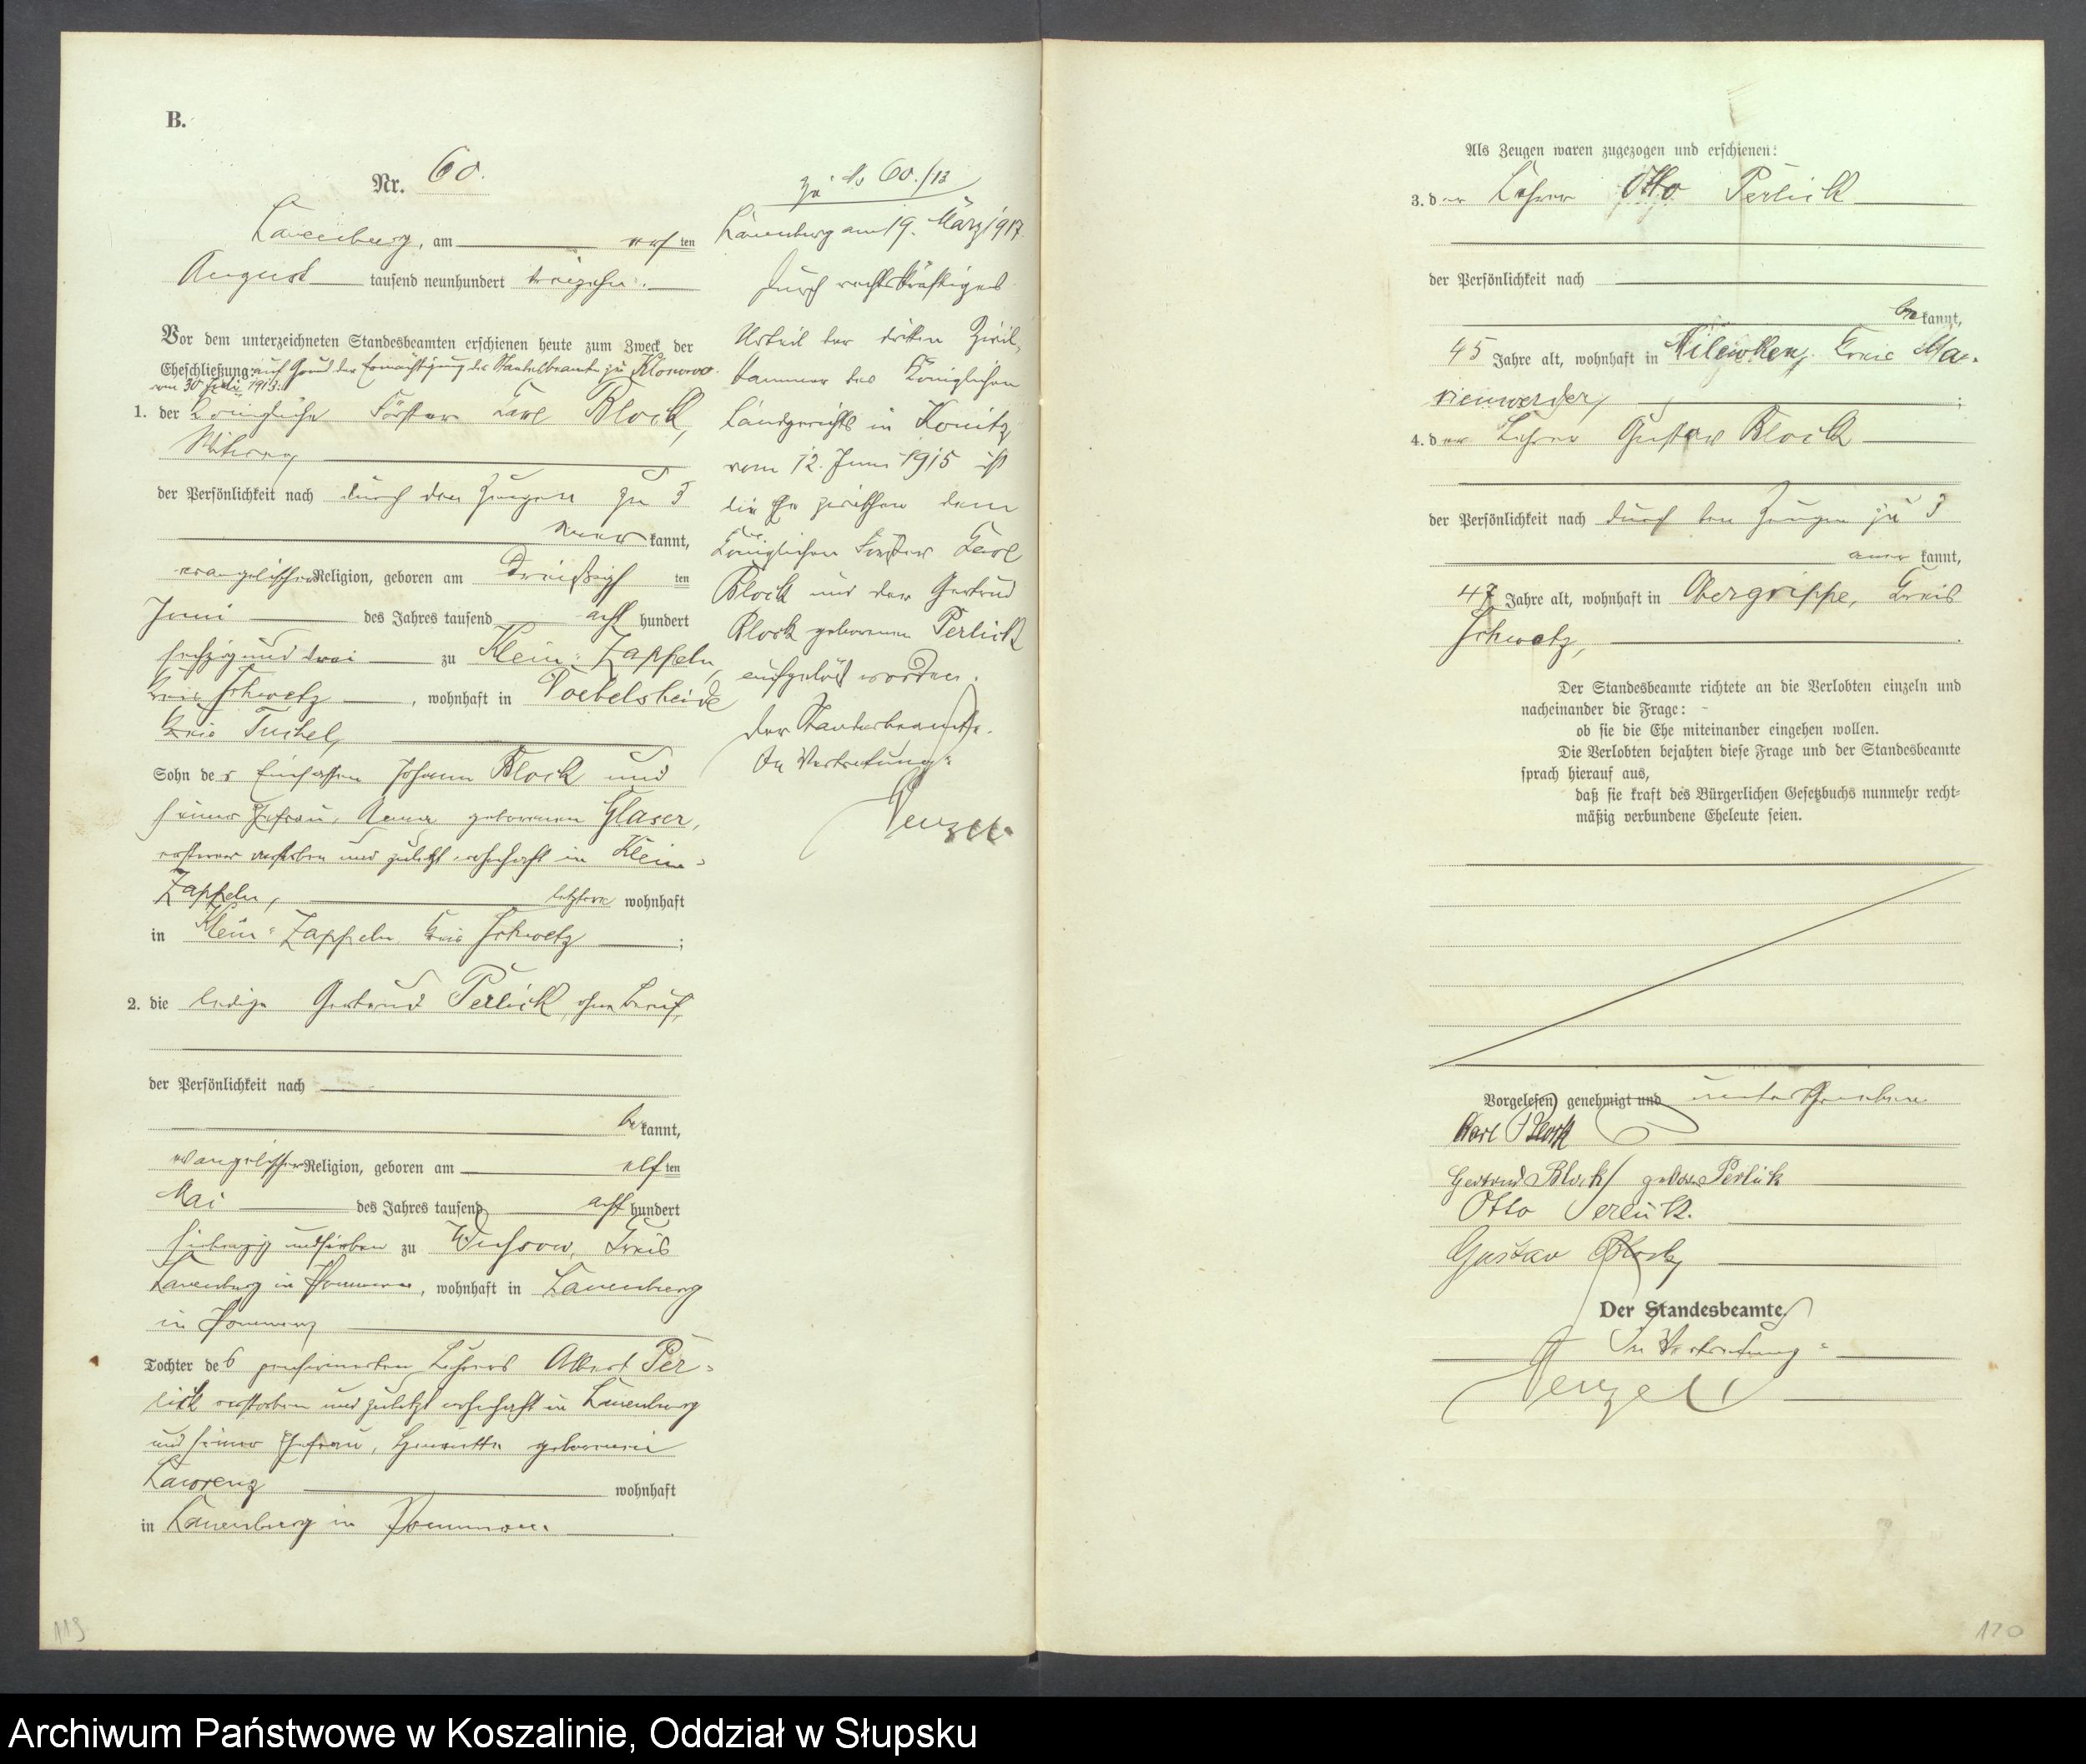 B.
Nr. 60.
Lauenburg, am ersten
August tausend neunhundert dreizehn.
Vor dem unterzeichneten Standesbeamten erschienen heute zum Zweck der
Eheschließung: auf Grund der Ermächtigung des Standesbeamten zu Klonowo
vom 30 Juli 1913.
1. der Königliche Förster Karl Block,
Witwer
der Persönlichkeit nach durch den Zeugen zu 3
anerkannt,
evangelischer Religion, geboren am dreißigsten
Juni des Jahres tausend acht hundert
sechzig und drei zu Klein-Zappeln,
Kreis Schwetz, wohnhaft in Poebelsheide
Kreis Tuchel,
Sohn des Einsassen Johann Block und
seiner Ehefrau, Anna geborenen Glaser,
ersterer verstorben und zuletzt wohnhaft in Klein-
Zappeln, letztere wohnhaft
in Klein-Zappeln Kreis Schwetz;
2. die ledige Gertrud Perlick, ohne Beruf,
der Persönlichkeit nach
bekannt,
evangelischer Religion, geboren am elften
Mai des Jahres tausend acht hundert
siebenzig und sieben zu Wussow, Kreis
Lauenburg in Pommern, wohnhaft in Lauenburg
in Pommern
Tochter des pensionierten Lehrers Albert Per-
lick verstorben und zuletzt wohnhaft in Lauenburg
und seiner Ehefrau, Henriette geborenen
Lawrenz wohnhaft
in Lauenburg in Pommern.
Zu No 60./13
Lauenburg am 19. März 1917.
Durch rechtskräftiges
Urteil der dritten Zivil-
kammer des Königlichen
Landgerichts in Konitz
vom 12. Juni 1915 ist
die Ehe zwischen dem
Königlichen Förster Karl
Block und der Gertrud
Block geborenen Perlick
aufgelöst worden.
Der Standesbeamte.
In Vertretung:
Wenzel.
Als Zeugen waren zugezogen und erschienen:
3. der Lehrer Otto Perlick
der Persönlichkeit nach
bekannt,
45 Jahre alt, wohnhaft in Kreis Ma-
rienwerder,;
4. der Lehrer Gustav Block
der Persönlichkeit nach durch den Zeugen zu 3
anerkannt,
47 Jahre alt, wohnhaft in Obergruppe, Kreis
Schwetz,.
Der Standesbeamte richtete an die Verlobten einzeln und
nacheinander die Frage:
ob sie die Ehe miteinander eingehen wollen.
Die Verlobten bejahten diese Frage und der Standesbeamte
sprach hierauf aus,
daß sie kraft des Bürgerlichen Gesetzbuchs nunmehr recht-
mäßig verbundene Eheleute seien.
Vorgelesen, genehmigt und unterschrieben
Karl Block
Gertrud Block geborne Perlick
Otto Perlick.
Gustav Block
Der Standesbeamte.
In Vertretung:
Wenzel
119
120
Archiwum Państwowe w Koszalinie, Oddział w Słupsku